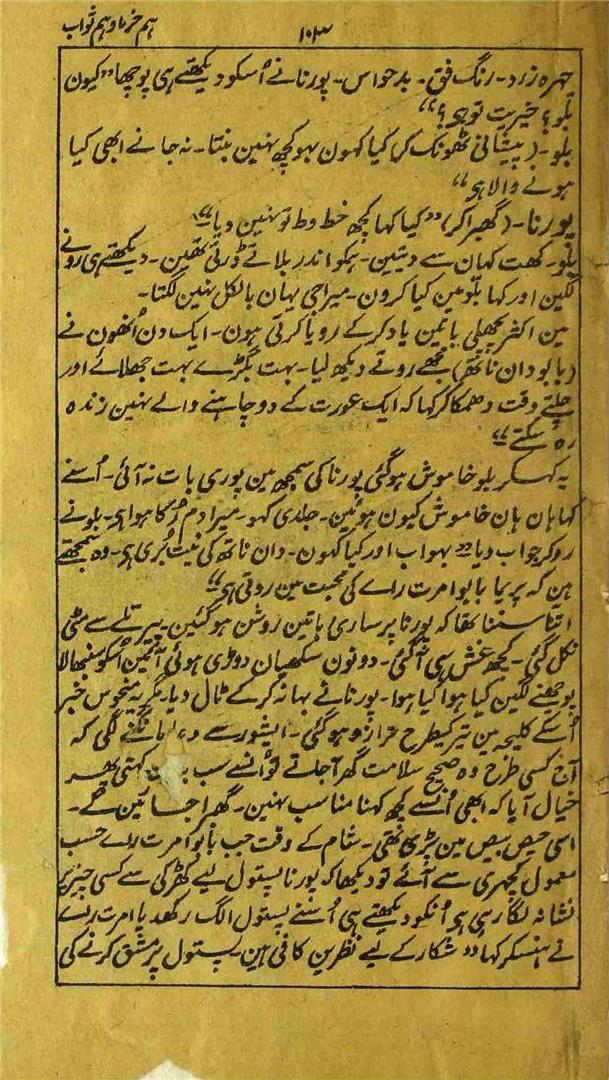 ہم خرما و ہم ثواب
۱۰۳
چہرہ زرد۔ رنگ فق۔ بدحواس۔ پورنا نے اُسکو دیکھتے ہی پوچھا ”کیون
بلو؟ خیریت تو ہی؟“
بلو۔ (پیشانی ٹھونک کر) کیا کہون بہو کچھ نہین بنتا۔ نہ جانے ابھی کیا
ہونے والا ہی“
پورنا۔ (گھبراکر) ”کیا کہا کچھ خط وط تو نہین دیا“
بلو۔ کھت کہان سے دیتین۔ ہمکو اندر بلاتے ڈرتی تھین۔ دیکھتے ہی رونے
لگین اور کہا بلو مین کیا کرون۔ میرا جی یہان بالکل نہین لگتا۔
مین اکثر پچھلی باتین یاد کرکے رویا کرتی ہون۔ ایک دن اُنھون نے
(بابو دان ناتھ) مجھے روتے دیکھ لیا۔ بہت بگڑے بہت جھلائے اور
چلتے وقت دھمکاکر کہا کہ ایک عورت کے دو چاہنے والے نہین زندہ
رہ سکتے“
یہ کہکر بلو خاموش ہوگئی پورنا کی سمجھ مین پوری بات نہ آئی۔ اُسنے
کہا ہان ہان خاموش کیون ہوئین۔ جلدی کہو۔ میرا دم رُکا ہوا ہی۔ بلو نے
روکر جواب دیا ”بہو اب اور کیا کہون۔ دان ناتھ کی نیت بُری ہی۔ وہ سمجھتے
ہین کہ پریما بابو امرت راے کی محبت مین روتی ہی“
اتنا سننا تھا کہ پورنا پر ساری باتین روشن ہوگئین۔ پیر تلے سے مٹی
نکل گئی۔ کچھ غش سی آگئی۔ دونون سکھیان دوڑی ہوئی آئین اُسکو سنبھالا
پوچھنے لگین کیا ہوا کیا ہوا۔ پورنا نے بہانہ کرکے ٹال دیا۔ مگر یہ منحوس خبر
اُسکے کلیجہ مین تیر کیطرح ترازو ہوگئی۔ ایشور سے دعا مانگنے لگی کہ
آج کسی طرح وہ صحیح سلامت گھر آجاتے تو اُنسے سب کہتی پھر
خیال آیا کہ ابھی اُنسے کچھ کہنا مناسب نہین۔ گھبرا جائین گے۔
اسی حیص بیص مین پڑی تھی۔ شام کے وقت جب بابو امرت راے حسب
معمول کچہری سے آئے تو دیکھا کہ پورنا پستول لیے کھڑکی سے کسی چیز پر
نشانہ لگا رہی ہی اُنکو دیکھتے ہی اُسنے پستول الگ رکھدیا امرت راے
نے ہنسکر کہا ”شکار کے لیے نظرین کافی ہین۔ پستول پر مشق کرنے کی